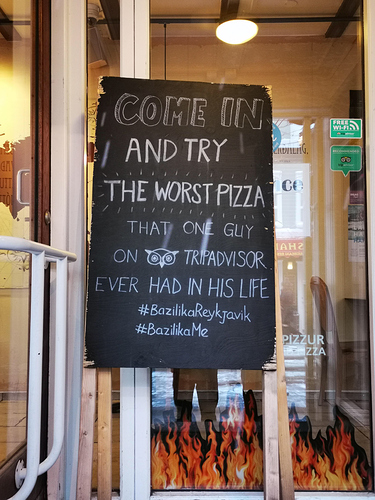 COME IN
AND TRY
THE WORST PIZZA
THAT ONE GUY
ON TRIPADVISOR
EVER HAD IN HIS LIFE
#BazilikaReykjavik
#BazilikaMe
FREE
Wi-Fi
PIZZUR
ZZA